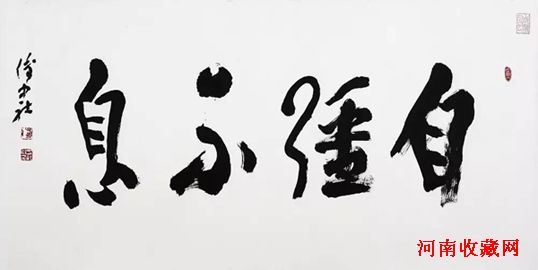 自彊不息
河南收藏网